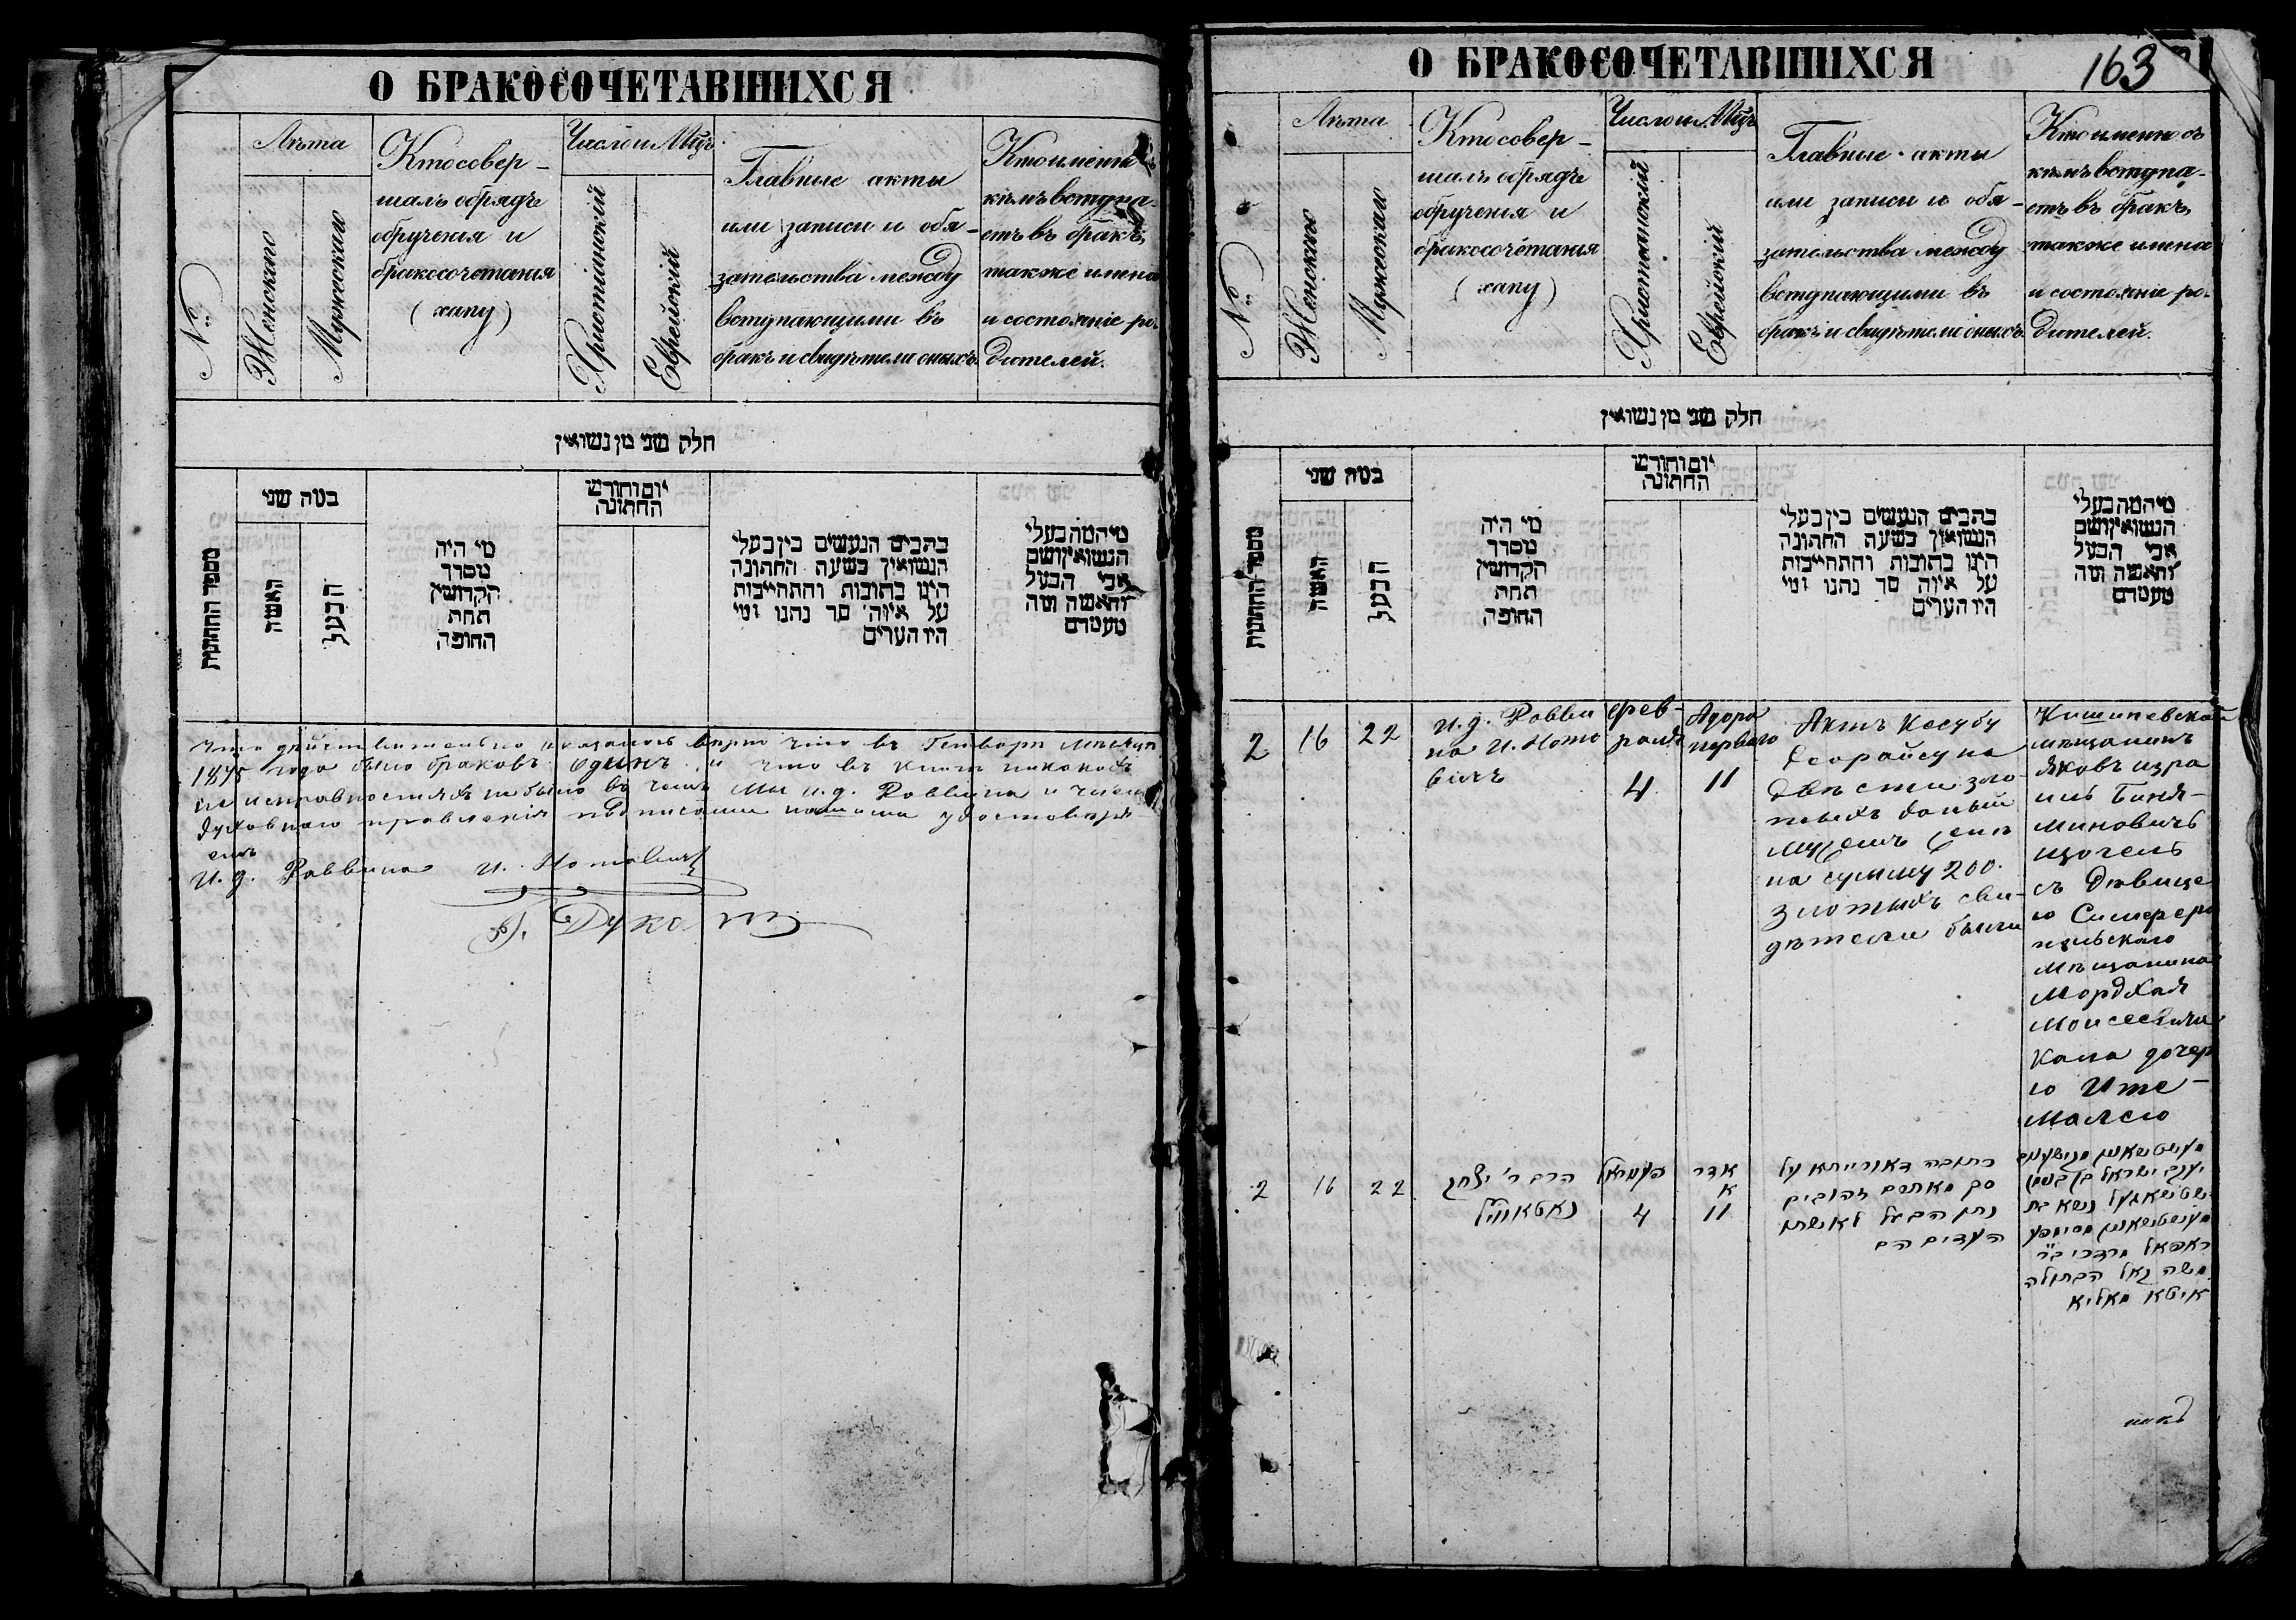 О БРАКОСОЧЕТАВШИХСЯ
№
Лѣта
Женскаго
Мужескаго
Кто совер-
шалъ обрядъ
обрученія и
бракосочетанія
(хапу)
Число и Мцъ
Христіанскій
Еврейскій
Главные акты
или записи и обя-
зательства между
вступающими въ
бракъ и свидѣтели оныхъ.
Кто именно съ
кѣмъ вступа-
етъ въ бракъ,
также имена
и состояніе ро-
дителей.
חלק שני מן נשואין
מספר החתונות
כמה שני
האשה
הבעל
מי היה
מסדר
הקדושין
תחת
החופה
יום וחודש
החתונה
כתבים הנעשים בין בעלי
הנשואין בשעה החתונה
היינו כתובות והתחייבות
על איזה סך נתנו ומי
היו העדים
מי המה בעלי
הנשואין ושם
אבי הבעל
והאשה ומה
מעמדם
что действительно показанъ верно что въ Генваре месяце
1875 года было браковъ одинъ и что въ книге никакихъ
не исправностяхъ не было въ чемъ мы и. д. Раввина и члены
духовнаго правленія подписами нашими удостоверя-
емъ
И. д. Раввина И. Нотовичъ
О БРАКОСОЧЕТАВШИХСЯ
163
№
Лѣта
Женскаго
Мужескаго
Кто совер-
шалъ обрядъ
обрученія и
бракосочетанія
(хапу)
Число и Мцъ
Христіанскій
Еврейскій
Главные акты
или записи и обя-
зательства между
вступающими въ
бракъ и свидѣтели оныхъ.
Кто именно съ
кѣмъ вступа-
етъ въ бракъ,
также имена
и состояніе ро-
дителей.
חלק שני מן נשואין
מספר החתונות
כמה שני
האשה
הבעל
מי היה
מסדר
הקדושין
תחת
החופה
יום וחודש
החתונה
כתבים הנעשים בין בעלי
הנשואין בשעה החתונה
היינו כתובות והתחייבות
על איזה סך נתנו ומי
היו העדים
מי המה בעלי
הנשואין ושם
אבי הבעל
והאשה ומה
מעמדם
2
16
22
и. д. Равви
на И. Ното
вичъ
Фев-
раля
4
Адора
первого
11
Актъ Кесубу
деорайсу на
двести зло-
тыхъ даный
мужемъ жене
на сумму 200
злотыхъ сви-
детели были
Кишиневской
мещанинъ
Яковъ Изра
иль Биня-
миновичъ
съ девице
ю Симферо
польскаго
мещанина
Мордхая
Моисеевича
Кала дочер
ю Ите-
Малею
2
16
22
הרב ר' יצחק
נאטאוויץ
פעווראל
4
אדר
א
11
כתובה דאורייתא על
סך מאתים זהובים
נתן הבעל לאשתו
העדים הם
מעשטשאנין קישענוב
יעקב ישראל בן בנימין
נשא בת
מעשטשאנין סימפע
ראפאל מרדכי ב"ר
משה קאל הבתולה
איטא מאליא